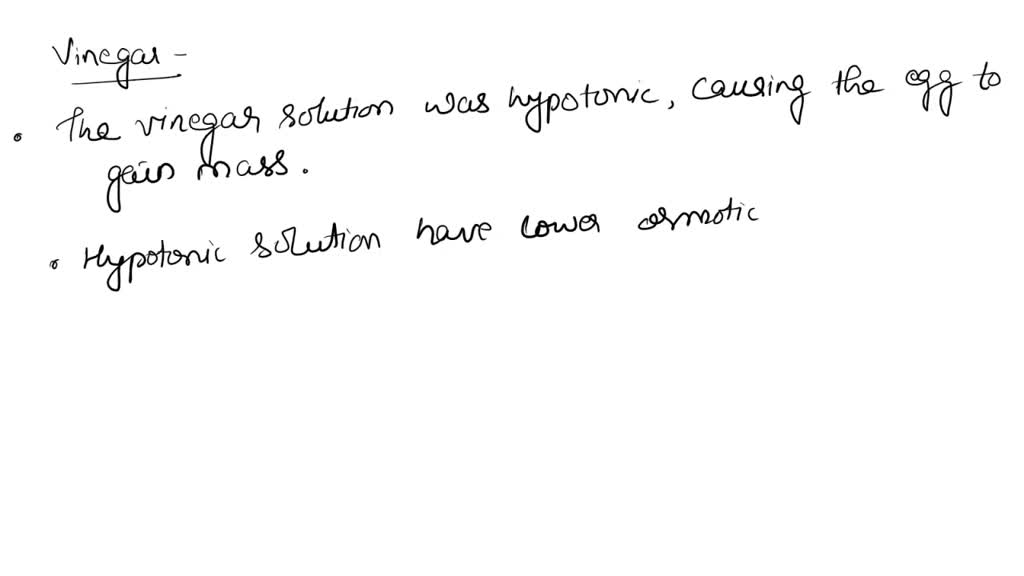 Vinegar -
• The vinegar solution was hypotonic, causing the egg to
gain mass.
• Hypotonic solution have lower osmotic